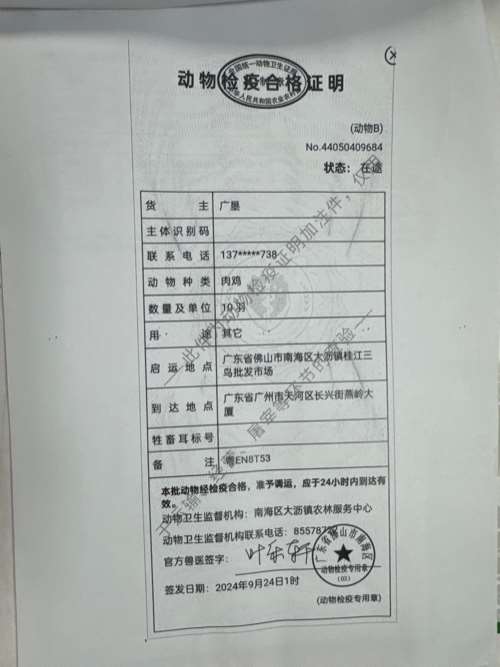 全国统一动物卫生证章
动物检疫合格证明
中华人民共和国农业农村部
(动物B)
No.44050409684
状态: 在途
货主 广垦
主体识别码
联系电话 137*****738
动物种类 肉鸡
数量及单位 10羽
用途 其它
启运地点 广东省佛山市南海区大沥镇桂江三
鸟批发市场
到达地点 广东省广州市天河区长兴街燕岭大
厦
牲畜耳标号
备注 粤EN8T53
本批动物经检疫合格，准予调运，应于24小时内到达有
效。
动物卫生监督机构: 南海区大沥镇农林服务中心
动物卫生监督机构联系电话: 855787
官方兽医签字:
签发日期: 2024年9月24日1时
广东省佛山市南海区
动物检疫专用章
(03)
(动物检疫专用章)
此件为动物检疫证明加注件，仅用
屠宰等环节的查验